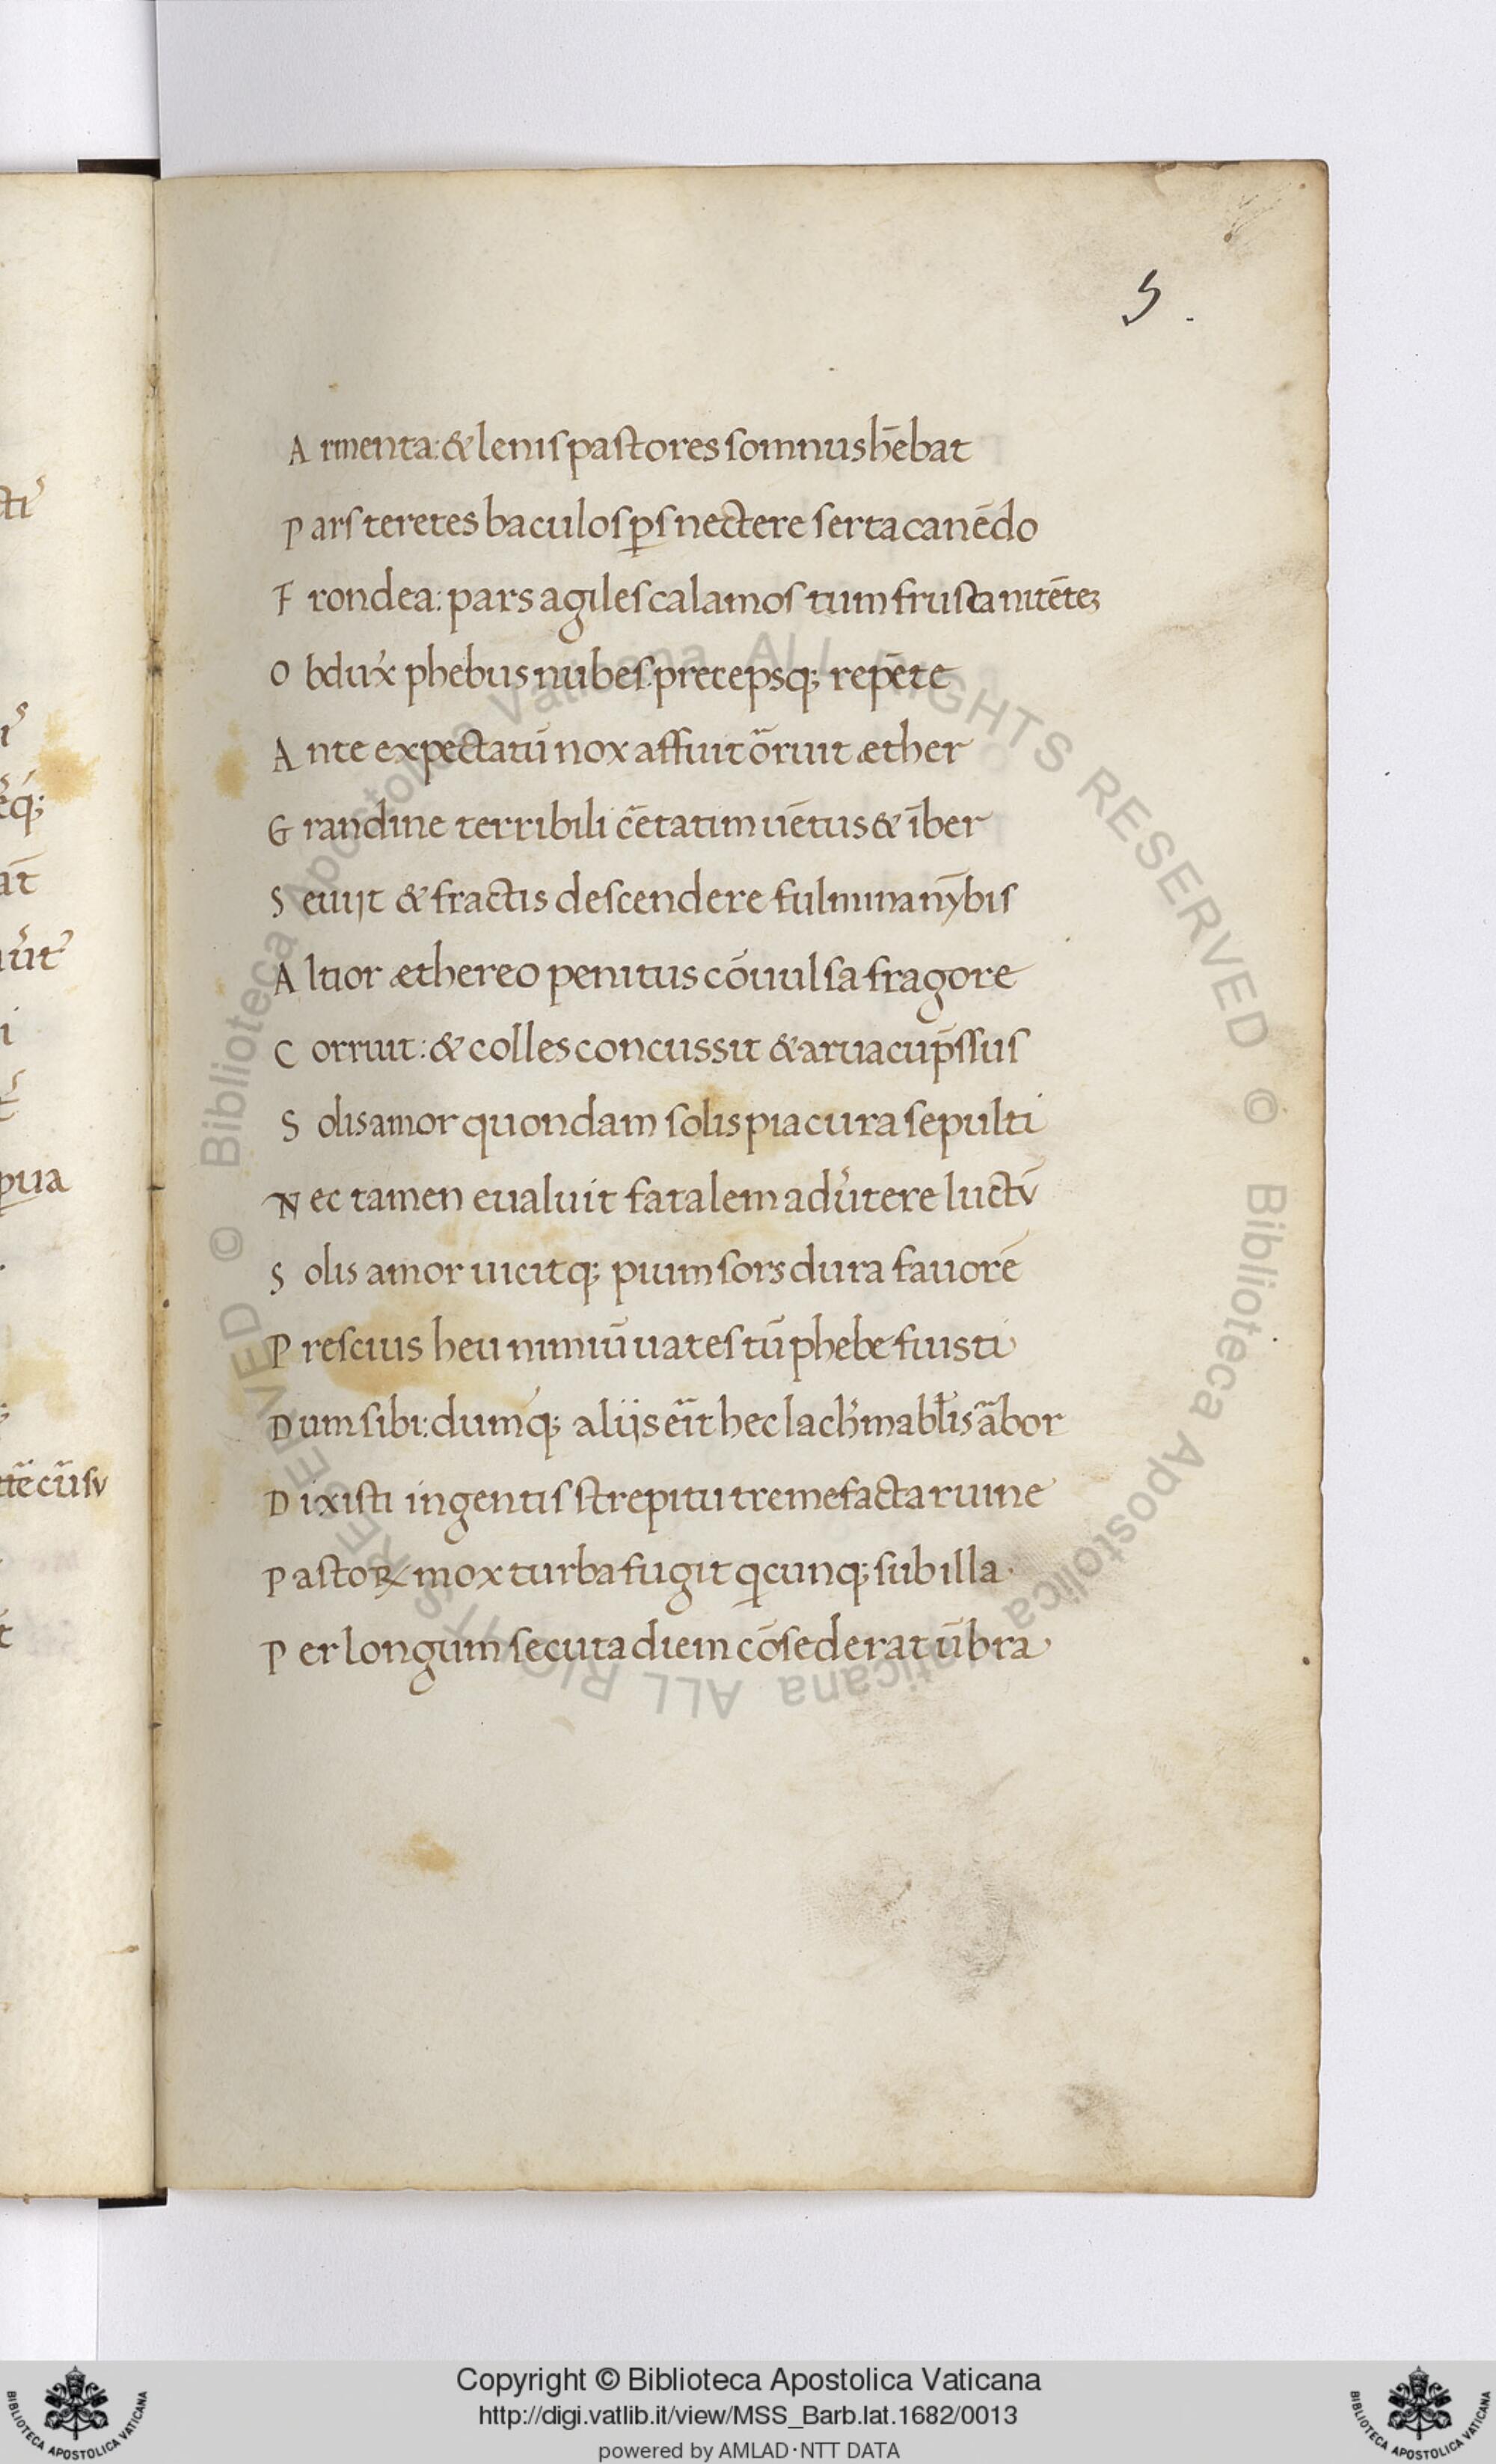 5.
A rmenta: & lenis pastores somnus hēbat
P ars teretes baculos ꝑs nectere serta canēdo
F rondea: pars agiles calamos tum frusta nitētes
O bdux̓ phebus nubes. precepsq; repēte
A nte expectatū nox affuit ōruit æther
G randine terribili c̄etatim uētus & īber
S euijt & fractis descendere fulmina nȳbis
A ltior æthereo penitus cōuulsa fragore
C orruit: & colles concussit & arua cup̄ssus
S olis amor quondam solis pia cura sepulti
N ec tamen eualuit fatalem adu̓tere luctū
S olis amor uicitq; pium sors dura fauorē
P rescius heu nimiū uates tū phebe fuisti
D um sibi: dumq; alijs eīt hec lach̓mabl̓is ābor
D ixisti ingentis strepitu tremefacta ruine
P astoꝝ mox turba fugit qcunq; sub illa.
P er longum secuta diem cōsederat ūbra
© Biblioteca Apostolica Vaticana ALL RIGHTS RESERVED © Biblioteca Apostolica Vaticana ALL RIGHTS RESERVED
Copyright © Biblioteca Apostolica Vaticana
http://digi.vatlib.it/view/MSS_Barb.lat.1682/0013
powered by AMLAD·NTT DATA
BIBLIOTECA APOSTOLICA VATICANA
BIBLIOTECA APOSTOLICA VATICANA